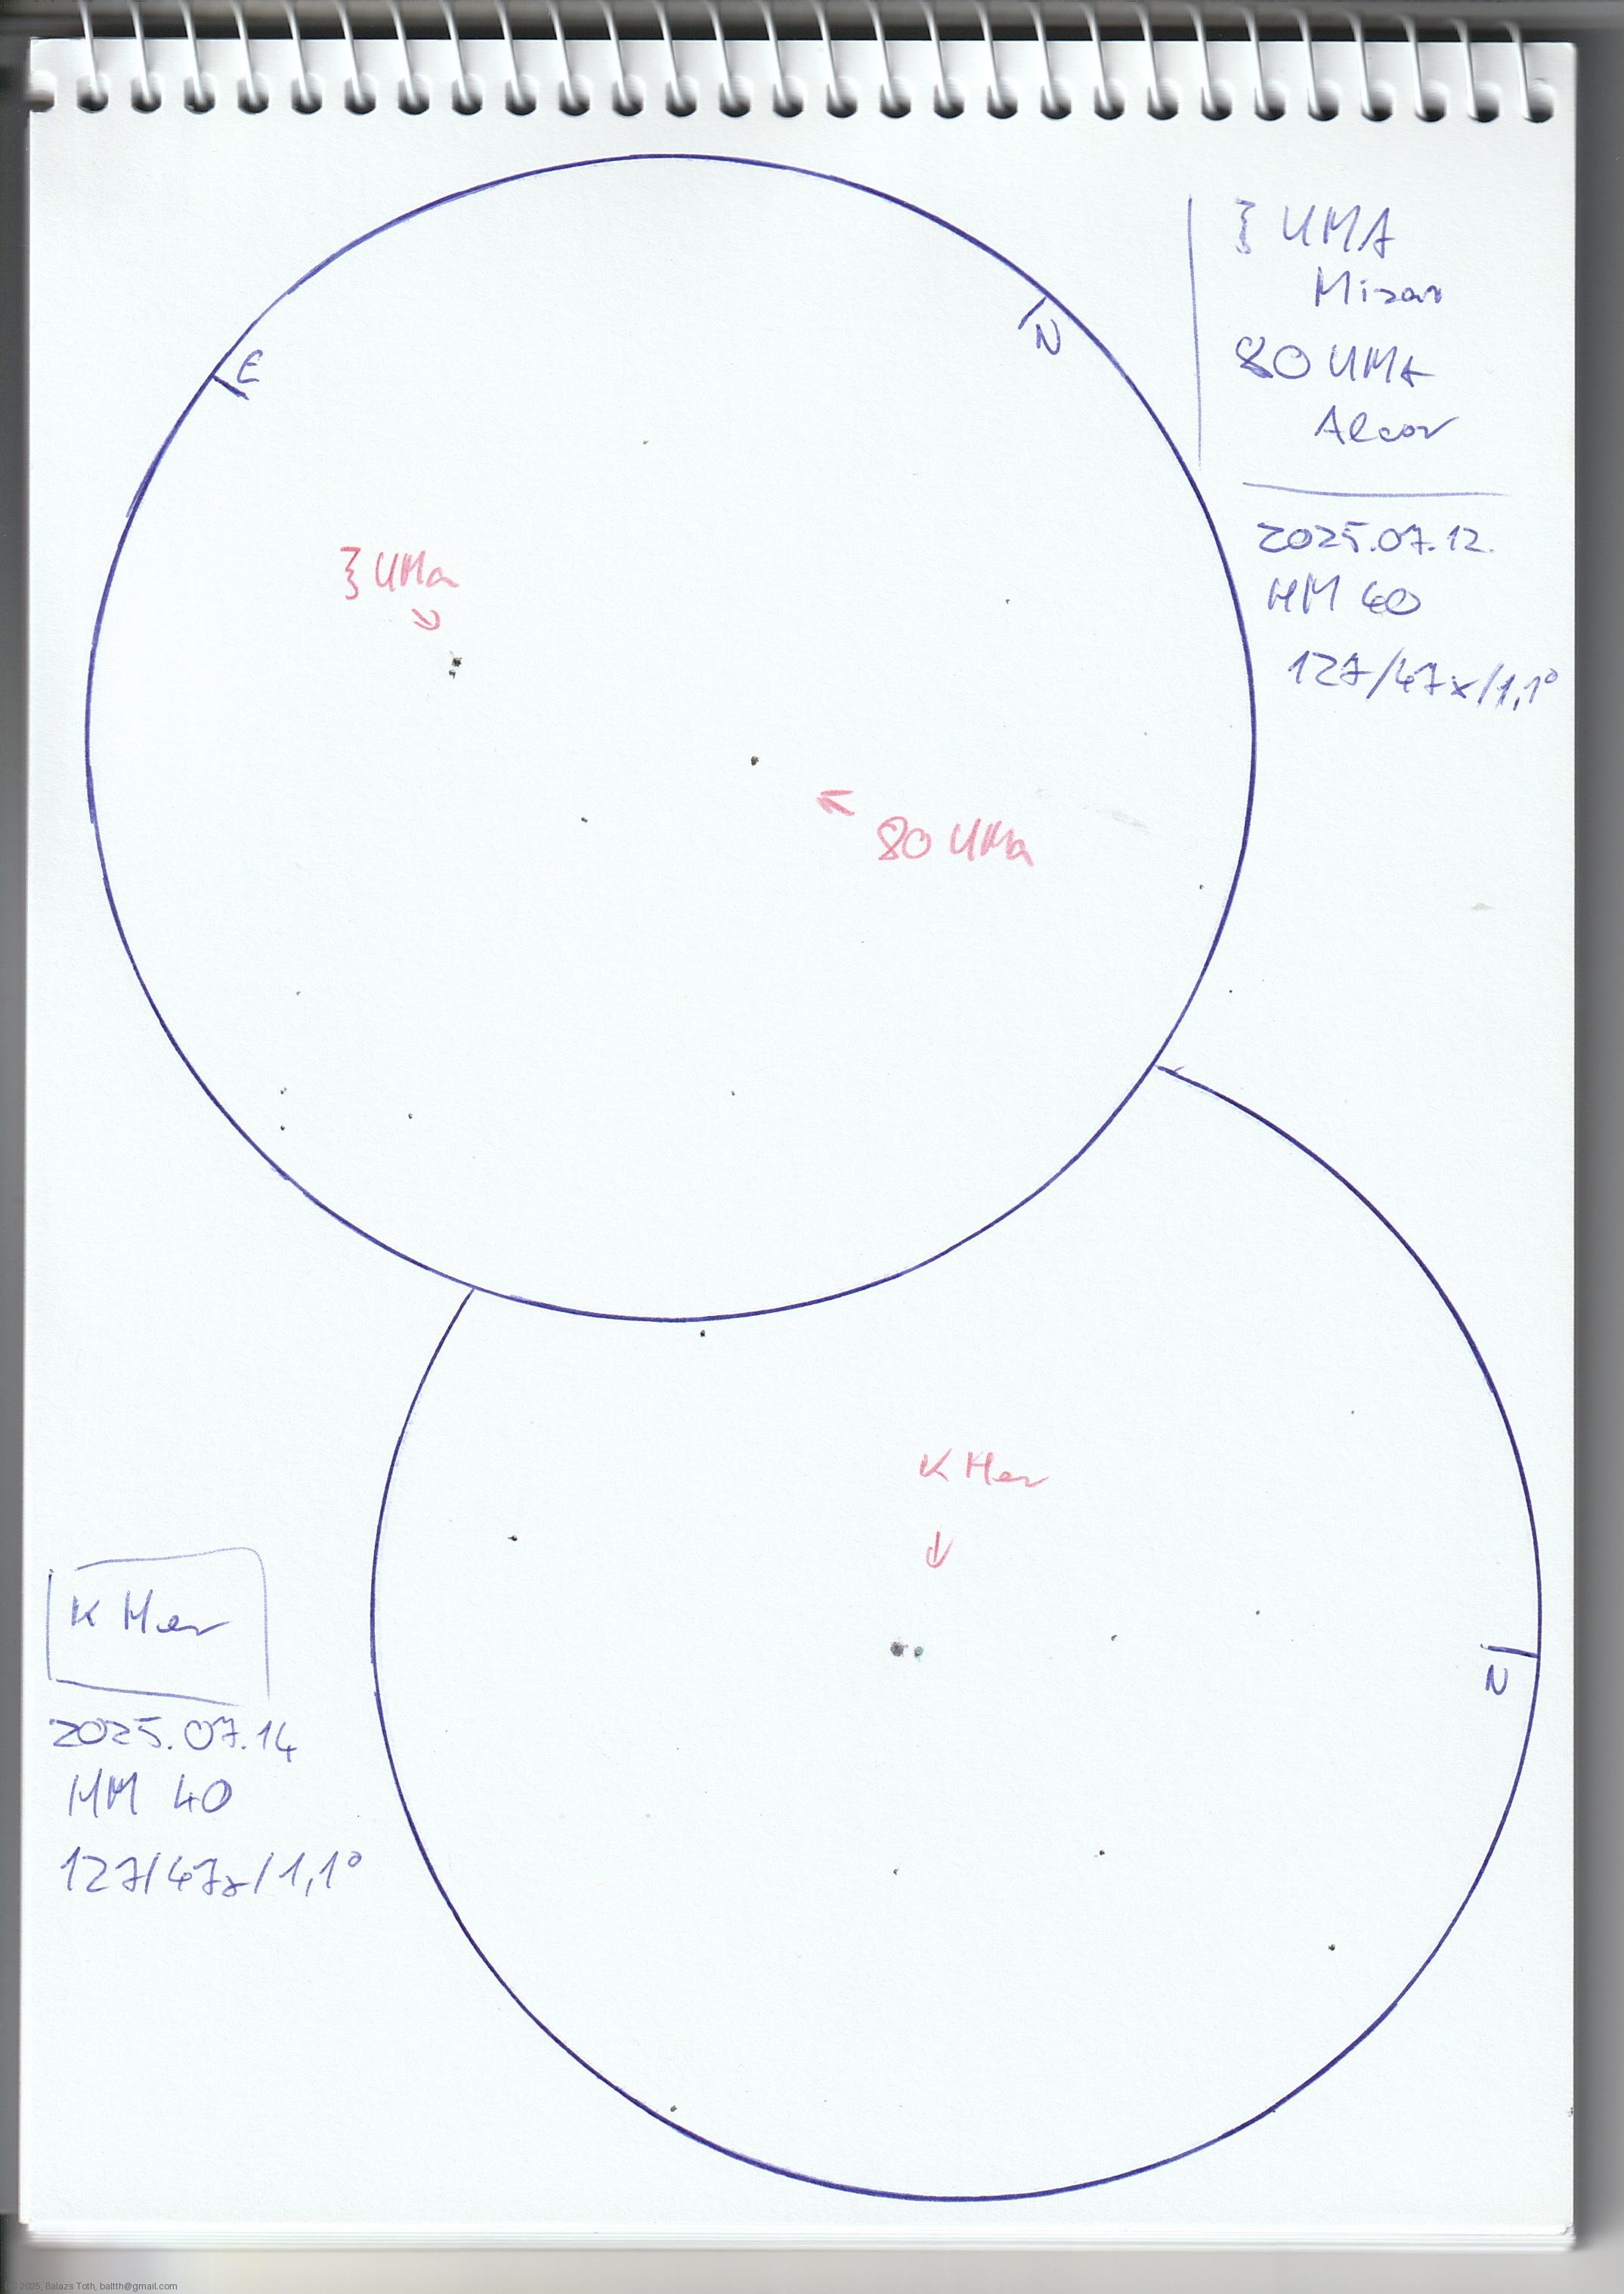 ξ UMA
Mizar
80 UMa
Alcor
2025.07.12.
HM 40
127/47x/1,1°
E
N
ξ UMa
80 UMa
κ Her
N
κ Her
2025.07.14
HM 40
127/47x/1,1°
© 2025, Balazs Toth, baltth@gmail.com